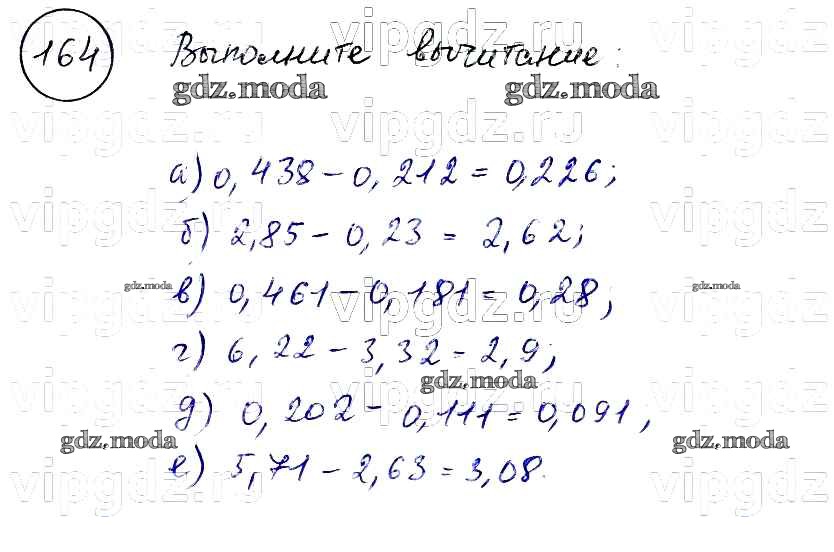 164 Выполните вычитание:
gdz.moda gdz.moda
vipgdz.ru vipgdz.ru vipgdz.ru
а) 0,438 - 0,212 = 0,226;
б) 2,85 - 0,23 = 2,62;
gdz.moda в) 0,461 - 0,181 = 0,28; gdz.moda
г) 6,22 - 3,32 = 2,9;
gdz.moda
д) 0,202 - 0,111 = 0,091,
gdz.moda gdz.moda
е) 5,71 - 2,63 = 3,08.
vipgdz.ru vipgdz.ru vipgdz.ru